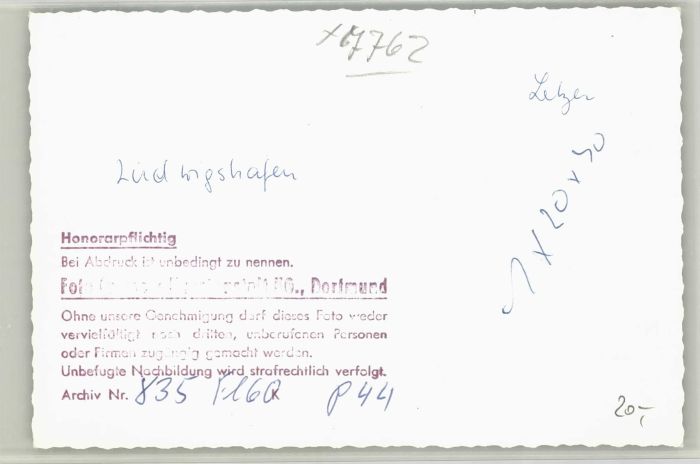 7762
Letzer
Ludwigshafen
1 x 20 x 30
Honorarpflichtig
Bei Abdruck ist unbedingt zu nennen.
Foto KG., Dortmund
Ohne unsere Genehmigung darf dieses Foto weder
vervielfältigt noch dritten, unberufenen Personen
oder Firmen zugängig gemacht werden.
Unbefugte Nachbildung wird strafrechtlich verfolgt.
Archiv Nr. 835 K P44
20,-